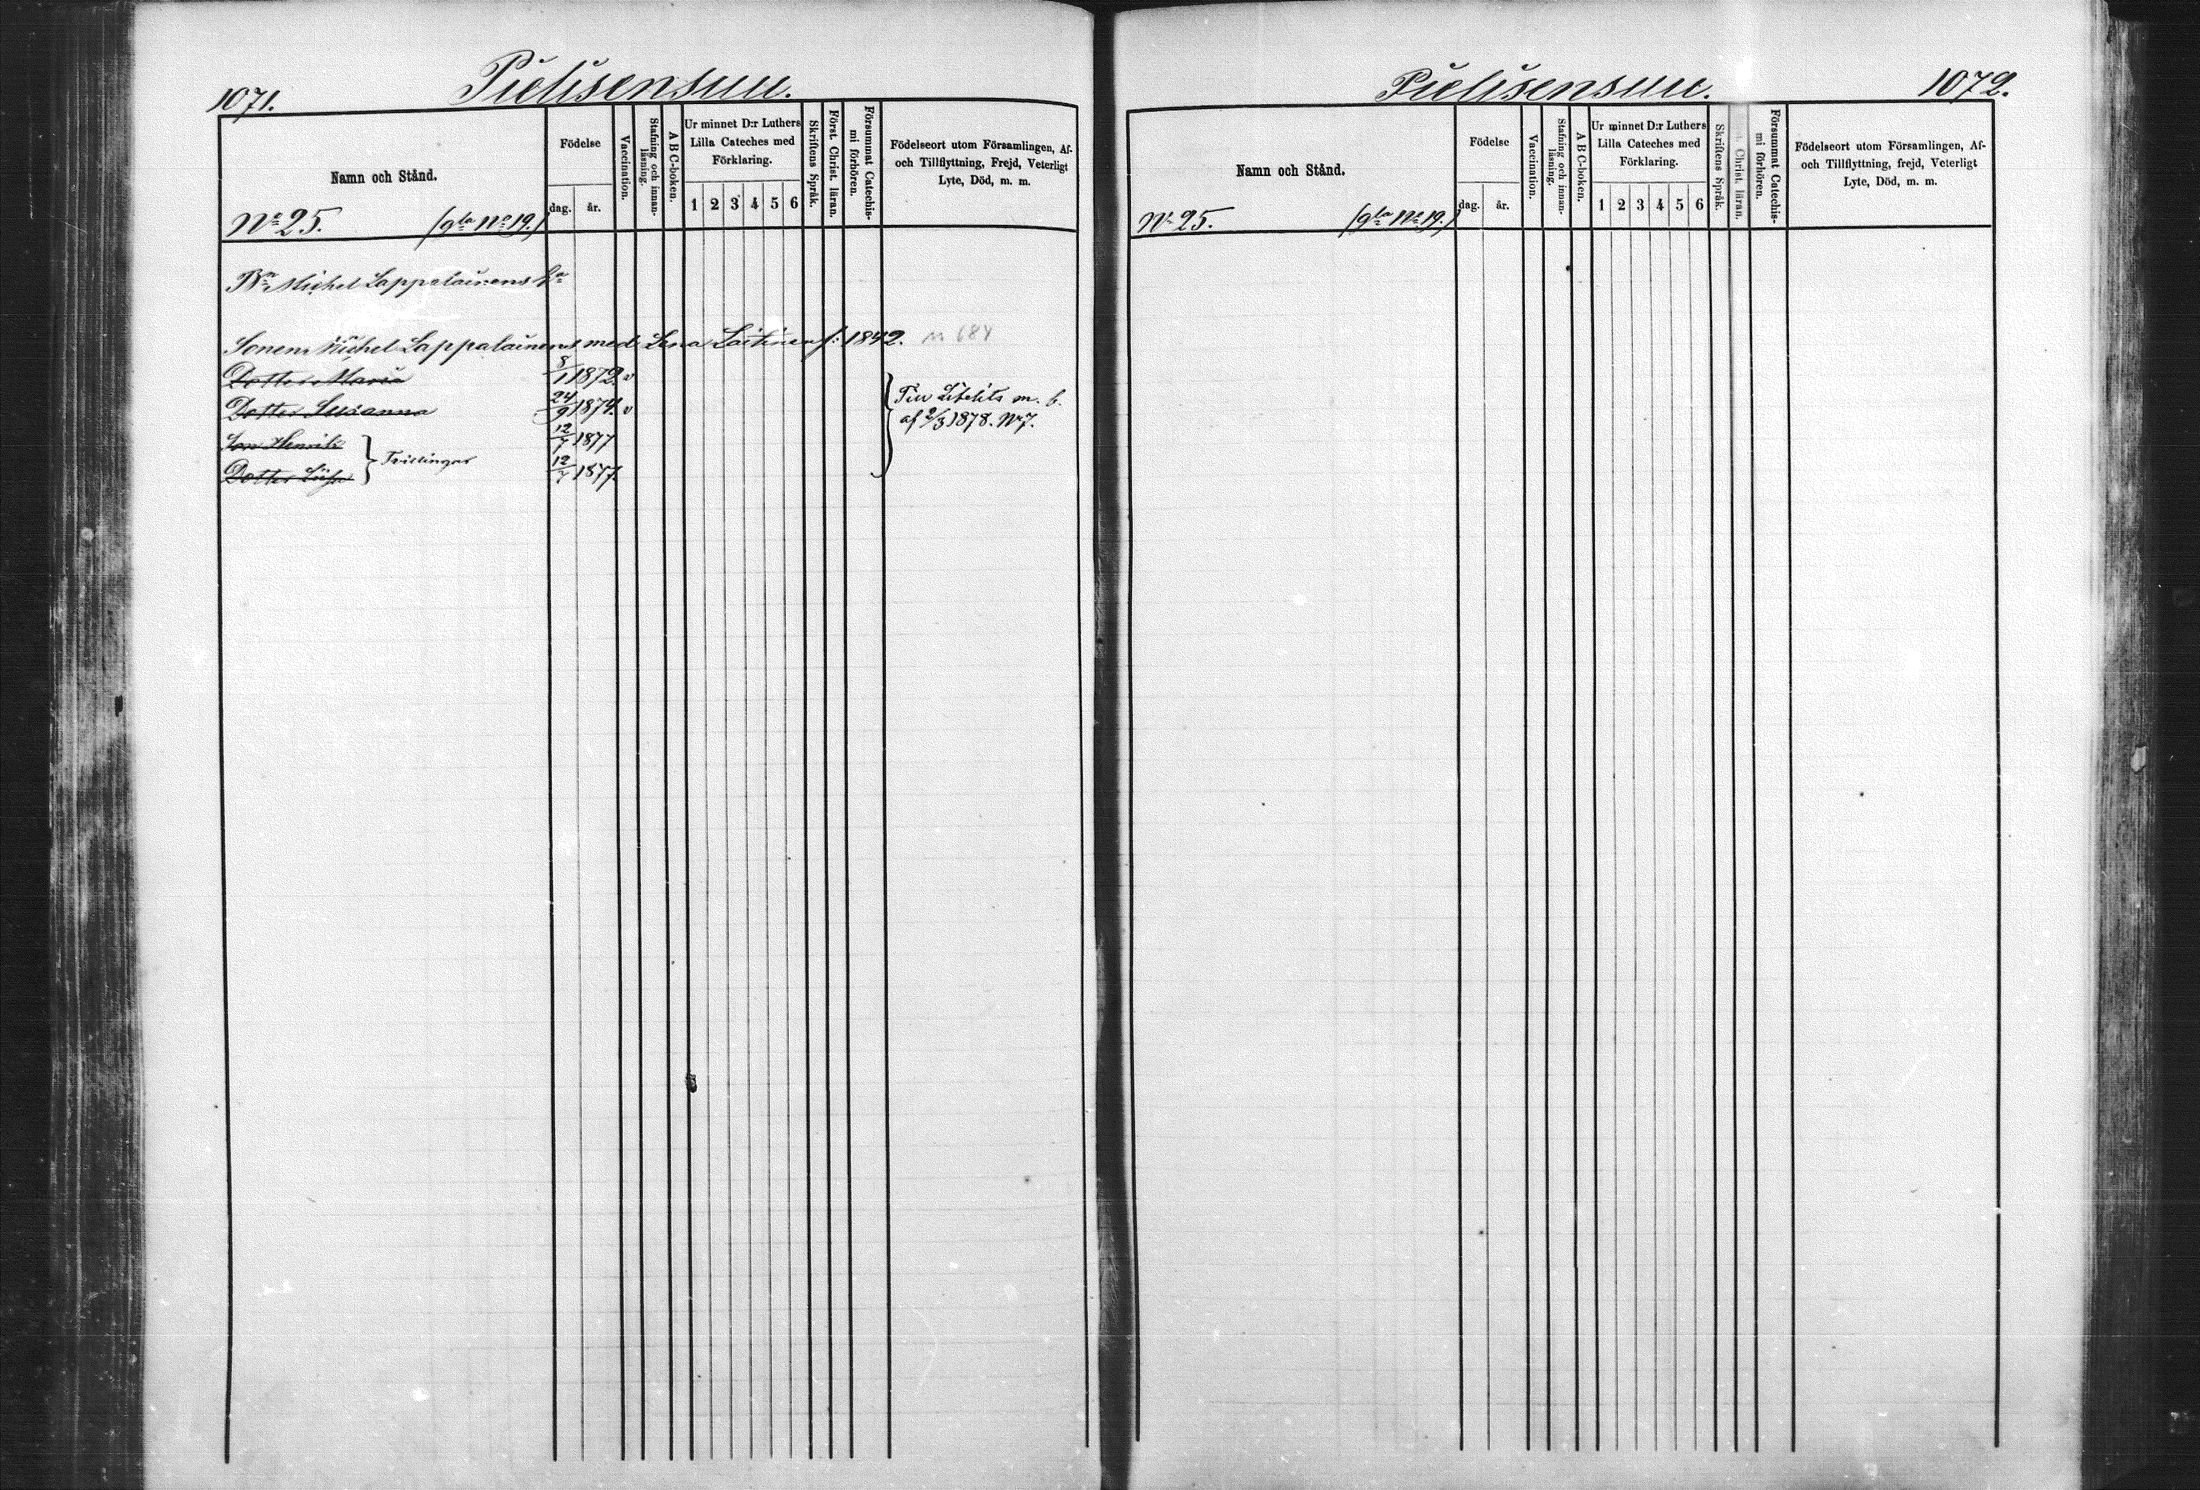 1071.
Pielisensuu.
Namn och Stånd.
Födelse
dag.
år.
Vaccination.
Stafning och innan-
läsning.
A B C-boken.
Ur minnet D:r Luthers
Lilla Cateches med
Förklaring.
1 2 3 4 5 6
Skriftens Språk.
Först. Christ. läran.
Försummat Catechis-
mi förhören.
Födelseort utom Församlingen, Af-
och Tillflyttning, Frejd, Veterligt
Lyte, Död, m. m.
No 25. (gla No 19.)
Michel Lappalainens
Sonens Michel Lappalainens med Lena Laitinen f: 1842.
Dotter Maria 8/1 1872. v
Dotter Susanna 24/9 1874. v
Son Henrik 12/7 1877
Dotter Lisa 12/7 1877.
Tvillingar
Till Libelits m. b.
af 2/3 1878. No 7.
Pielisensuu.
1072.
Namn och Stånd.
Födelse
dag.
år.
Vaccination.
Stafning och innan-
läsning.
A B C-boken.
Ur minnet D:r Luthers
Lilla Cateches med
Förklaring.
1 2 3 4 5 6
Skriftens Språk.
Christ. läran.
Försummat Catechis-
mi förhören.
Födelseort utom Församlingen, Af-
och Tillflyttning, frejd, Veterligt
Lyte, Död, m. m.
No 25. (gla No 19.)